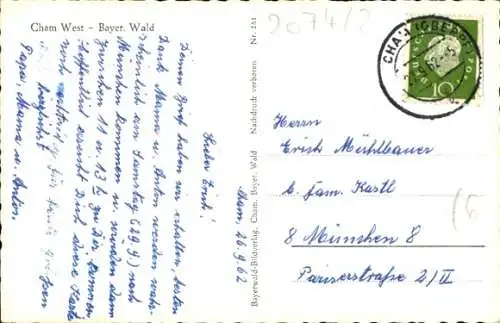 Cham West - Bayer. Wald
Cham, 26.9.62
Lieber Erich!
Deinen Brief haben wir erhalten, besten
Dank. Mama u. Anton werden wahr-
scheinlich am Samstag (29.9.) nach
München kommen u. würden dann
zwischen 11 u. 13 h zu Dir kommen.
Hoffentlich erreicht Dich diese Karte
noch
Grüßen
Papa, Mama u. Anton.
Bayerwald-Bildverlag, Cham, Bayer. Wald Nachdruck verboten Nr. 251
2074/2
CHAM (OBERPF
10
Herrn
Erich Mühlbauer
b. Fam. Kastl
8 München 8
Pariserstraße 2/II
(6